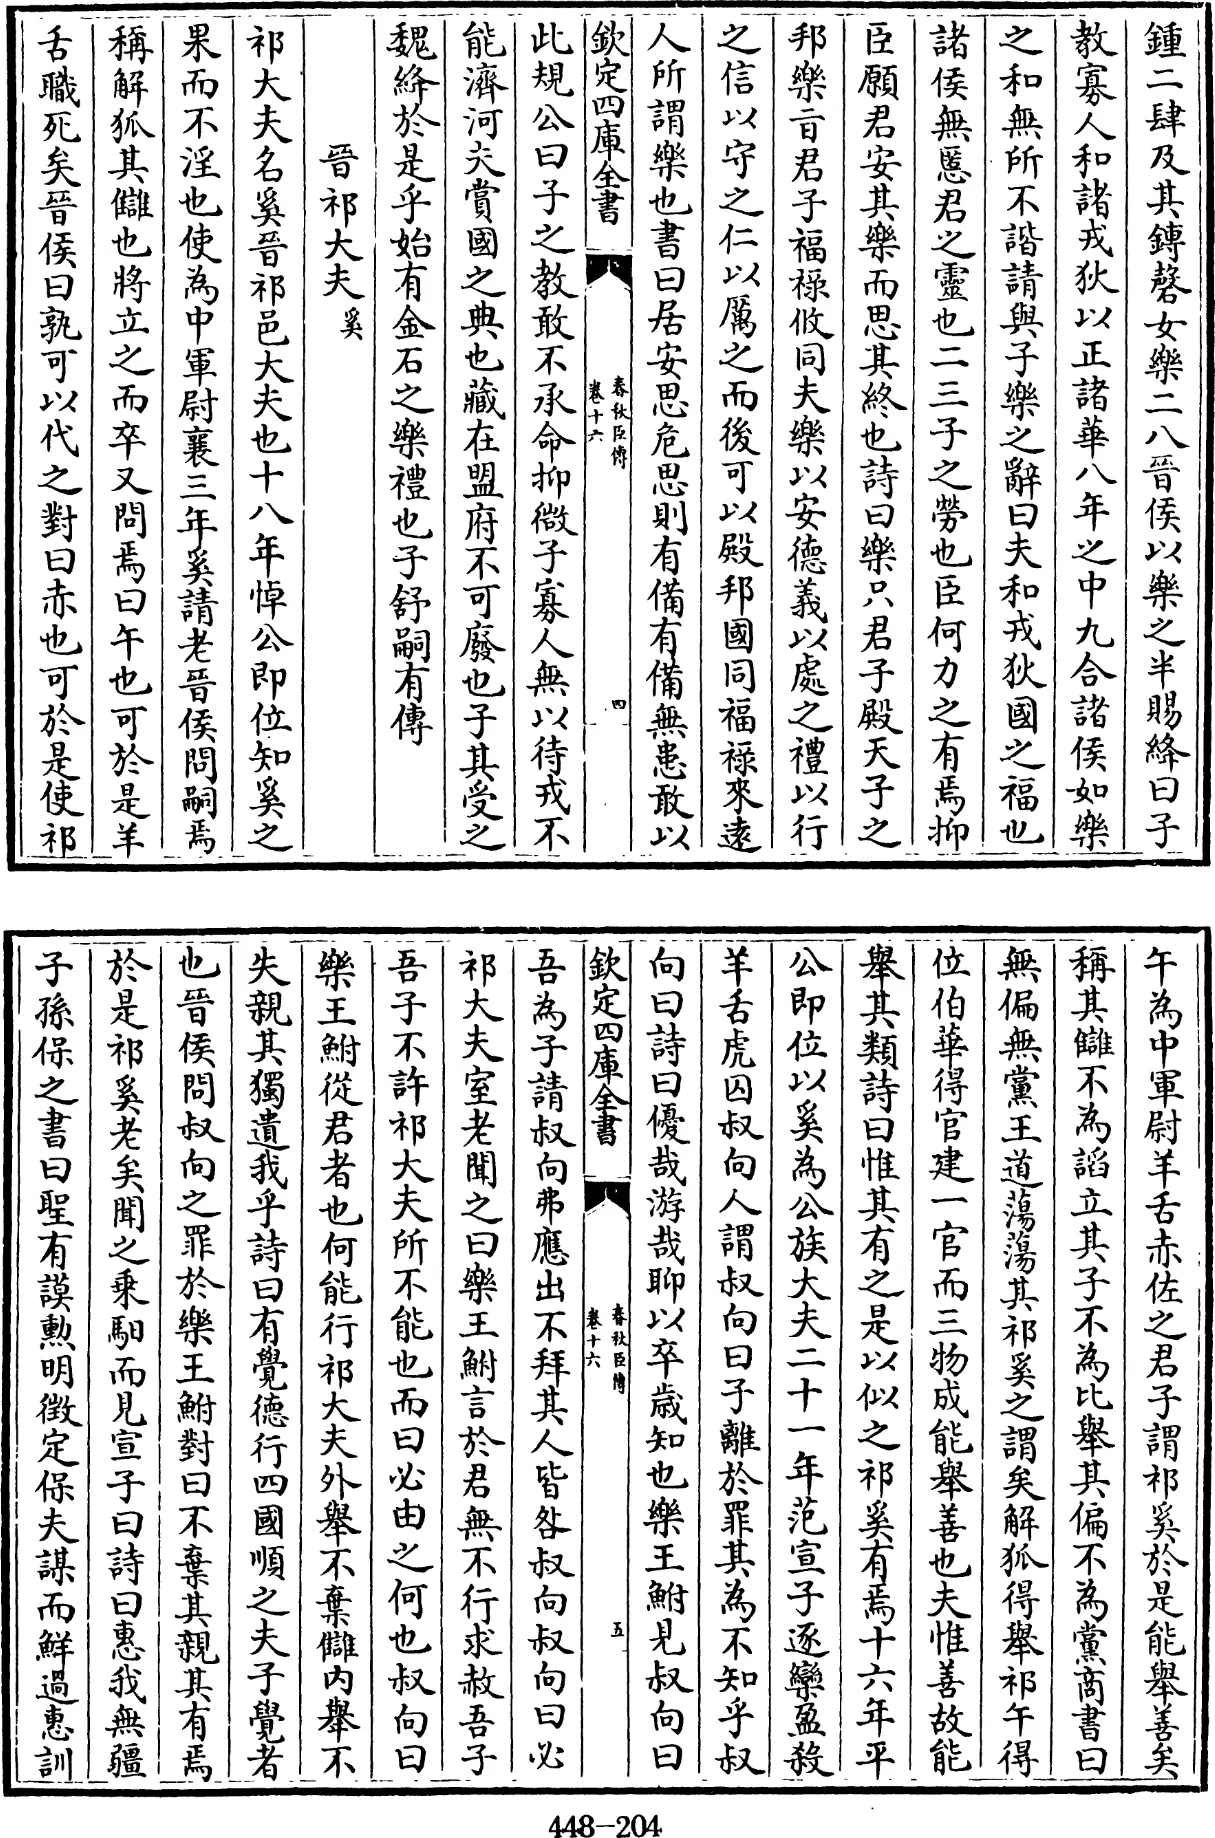 鍾二肆及其鏄磬女樂二八晉侯以樂之半賜絳曰子
教寡人和諸戎狄以正諸華八年之中九合諸侯如樂
之和無所不諧請與子樂之辭曰夫和戎狄國之福也
諸侯無慝君之靈也二三子之勞也臣何力之有焉抑
臣願君安其樂而思其終也詩曰樂只君子殿天子之
邦樂旨君子福祿攸同夫樂以安德義以處之禮以行
之信以守之仁以厲之而後可以殿邦國同福祿來遠
人所謂樂也書曰居安思危思則有備有備無患敢以
欽定四庫全書
春秋臣傳
卷十六
四
此規公曰子之教敢不承命抑微子寡人無以待戎不
能濟河夫賞國之典也藏在盟府不可廢也子其受之
魏絳於是乎始有金石之樂禮也子舒嗣有傳
晉祁大夫奚
祁大夫名奚晉祁邑大夫也十八年悼公即位知奚之
果而不淫也使為中軍尉襄三年奚請老晉侯問嗣焉
稱解狐其讎也將立之而卒又問焉曰午也可於是羊
舌職死矣晉侯曰孰可以代之對曰赤也可於是使祁
午為中軍尉羊舌赤佐之君子謂祁奚於是能舉善矣
稱其讎不為謟立其子不為比舉其偏不為黨商書曰
無偏無黨王道蕩蕩其祁奚之謂矣解狐得舉祁午得
位伯華得官建一官而三物成能舉善也夫惟善故能
舉其類詩曰惟其有之是以似之祁奚有焉十六年平
公即位以奚為公族大夫二十一年范宣子逐欒盈殺
羊舌虎囚叔向人謂叔向曰子離於罪其為不知乎叔
向曰詩曰優哉游哉聊以卒歲知也樂王鮒見叔向曰
欽定四庫全書
春秋臣傳
卷十六
五
吾為子請叔向弗應出不拜其人皆咎叔向叔向曰必
祁大夫室老聞之曰樂王鮒言於君無不行求赦吾子
吾子不許祁大夫所不能也而曰必由之何也叔向曰
樂王鮒從君者也何能行祁大夫外舉不棄讎內舉不
失親其獨遺我乎詩曰有覺德行四國順之夫子覺者
也晉侯問叔向之罪於樂王鮒對曰不棄其親其有焉
於是祁奚老矣聞之乘馹而見宣子曰詩曰惠我無疆
子孫保之書曰聖有謨勲明徵定保夫謀而鮮過惠訓
448-204